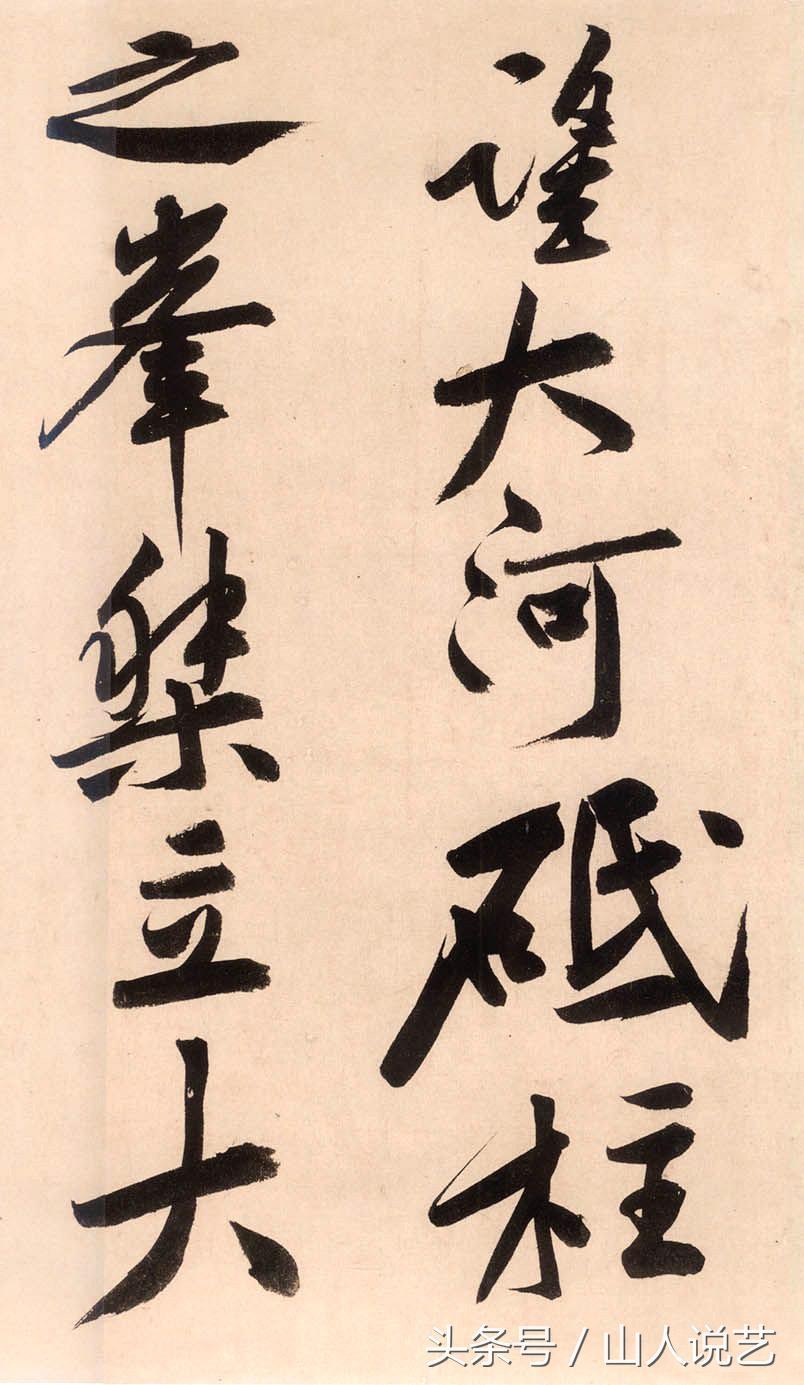 大河砥柱
之峯桀立大
头条号 / 山人说艺